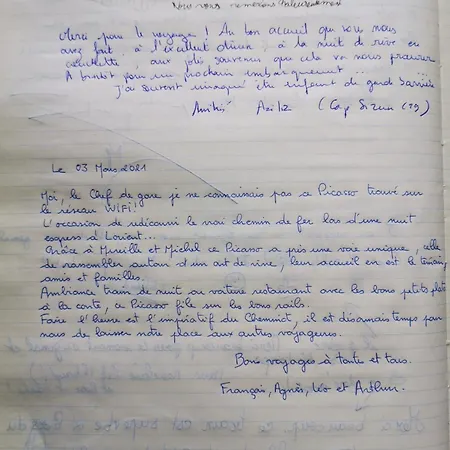 Nous vous remercions
Merci pour le voyage ! Au bon accueil que vous nous
avez fait, à l'excellent dîner, à la nuit de rêve en
couchette, aux jolis souvenirs que cela va nous procurer
A bientôt pour un prochain embarquement ......
J'ai souvent imaginé être enfant de garde barrière
Amitiés Aziliz (Cap Sizun (29)
Le 03 Mars 2021
Moi, le Chef de gare je ne connaissais pas ce Picasso trouvé sur
le réseau WiFi!
L'occasion de redécouvrir le vrai chemin de fer lors d'une nuit
express à Lorient...
Grâce à Mireille et Michel ce Picasso a pris une voie unique, celle
de rassembler autour d'un art de vivre, leur accueil en est le terrain,
amis et familles.
Ambiance train de nuit ou voiture restaurant avec les bons petits plats
à la carte, ce Picasso file sur les bons rails.
Faire l'heure est l'impératif du Cheminot, il est désormais temps pour
nous de laisser notre place aux autres voyageurs.
Bons voyages à toute et tous.
François, Agnès, Léo et Arthur.